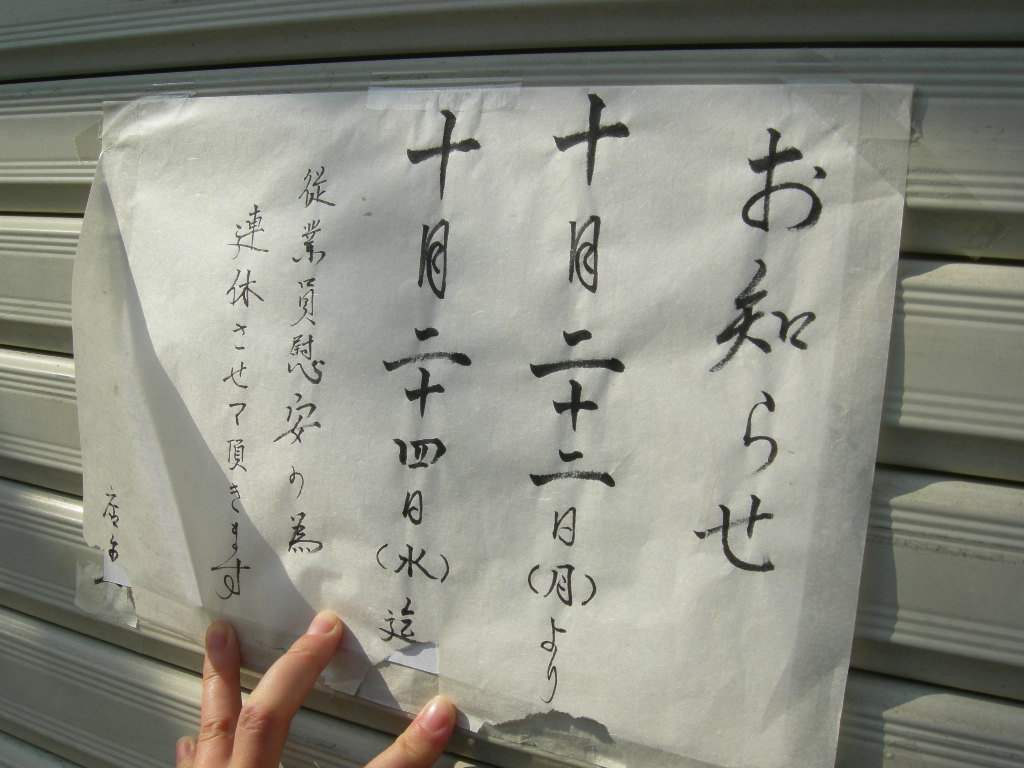 お知らせ
十月二十二日(月)より
十月二十四日(水)迄
従業員慰安の為
連休させて頂きます
店主